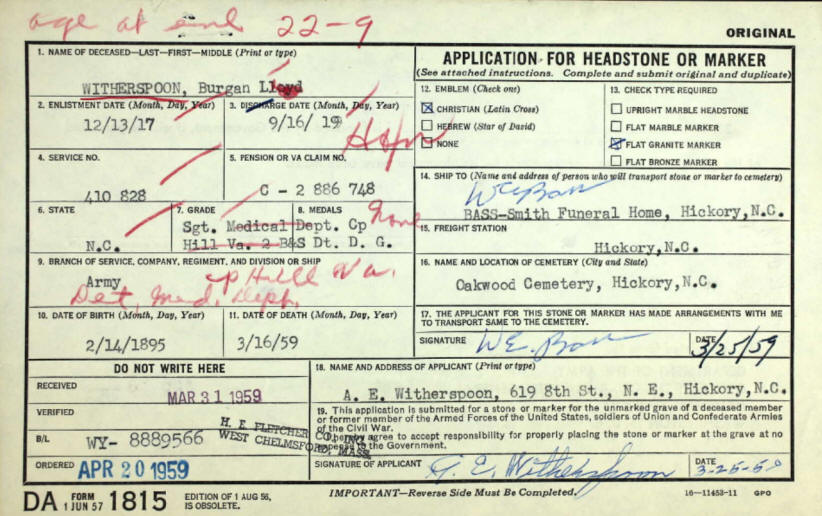 age at enl 22-9
ORIGINAL
1. NAME OF DECEASED—LAST—FIRST—MIDDLE (Print or type)
WITHERSPOON, Burgan Lloyd
2. ENLISTMENT DATE (Month, Day, Year)
12/13/17
3. DISCHARGE DATE (Month, Day, Year)
9/16/ 19
4. SERVICE NO.
410 828
5. PENSION OR VA CLAIM NO.
C - 2 886 748
6. STATE
N.C.
7. GRADE
8. MEDALS
None
Sgt. Medical Dept. Cp
Hill Va. 2 B&S Dt. D. G.
9. BRANCH OF SERVICE, COMPANY, REGIMENT, AND DIVISION OR SHIP
Army
Det, Med. Dept. Cp Hill Va.
10. DATE OF BIRTH (Month, Day, Year)
2/14/1895
11. DATE OF DEATH (Month, Day, Year)
3/16/59
APPLICATION FOR HEADSTONE OR MARKER
(See attached instructions. Complete and submit original and duplicate)
12. EMBLEM (Check one)
CHRISTIAN (Latin Cross)
HEBREW (Star of David)
NONE
13. CHECK TYPE REQUIRED
UPRIGHT MARBLE HEADSTONE
FLAT MARBLE MARKER
FLAT GRANITE MARKER
FLAT BRONZE MARKER
14. SHIP TO (Name and address of person who will transport stone or marker to cemetery)
BASS-Smith Funeral Home, Hickory,N.C.
15. FREIGHT STATION
Hickory,N.C.
16. NAME AND LOCATION OF CEMETERY (City and State)
Oakwood Cemetery, Hickory,N.C.
17. THE APPLICANT FOR THIS STONE OR MARKER HAS MADE ARRANGEMENTS WITH ME
TO TRANSPORT SAME TO THE CEMETERY.
SIGNATURE
DATE
3/25/59
DO NOT WRITE HERE
RECEIVED
MAR 31 1959
VERIFIED
B/L
WY- 8889566
H. E. FLETCHER CO., INC.
WEST CHELMSFORD, MASS.
ORDERED
APR 20 1959
18. NAME AND ADDRESS OF APPLICANT (Print or type)
A. E. Witherspoon, 619 8th St., N. E., Hickory,N.C.
19. This application is submitted for a stone or marker for the unmarked grave of a deceased member
or former member of the Armed Forces of the United States, soldiers of Union and Confederate Armies
of the Civil War.
I hereby agree to accept responsibility for properly placing the stone or marker at the grave at no
expense to the Government.
SIGNATURE OF APPLICANT
A. E. Witherspoon
DATE
DA FORM 1 JUN 57 1815
EDITION OF 1 AUG 56, IS OBSOLETE.
IMPORTANT—Reverse Side Must Be Completed.
16—11453-11 GPO